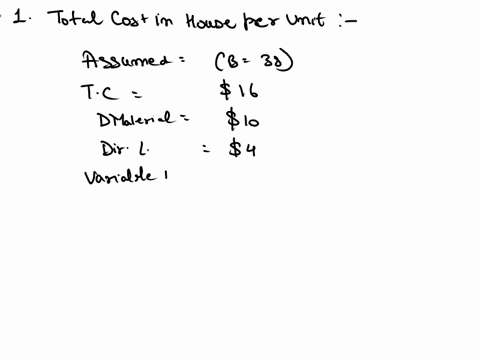 1. Total Cost in House per Unit :-
Assumed = (B = 38)
T.C = $16
DMaterial = $10
Dir. L. = $4
Variable